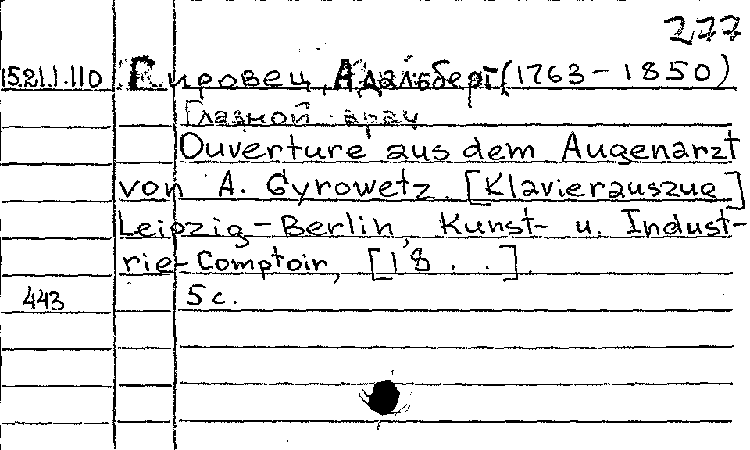 277
15.21.1.110 Гировец, Адальберт (1763-1850)
Глазной врач
Ouverture aus dem Augenarzt
von A. Gyrowetz. [Klavierauszug]
Leipzig-Berlin, Kunst- u. Indust-
rie-Comptoir, [18 . .].
443 5 c.